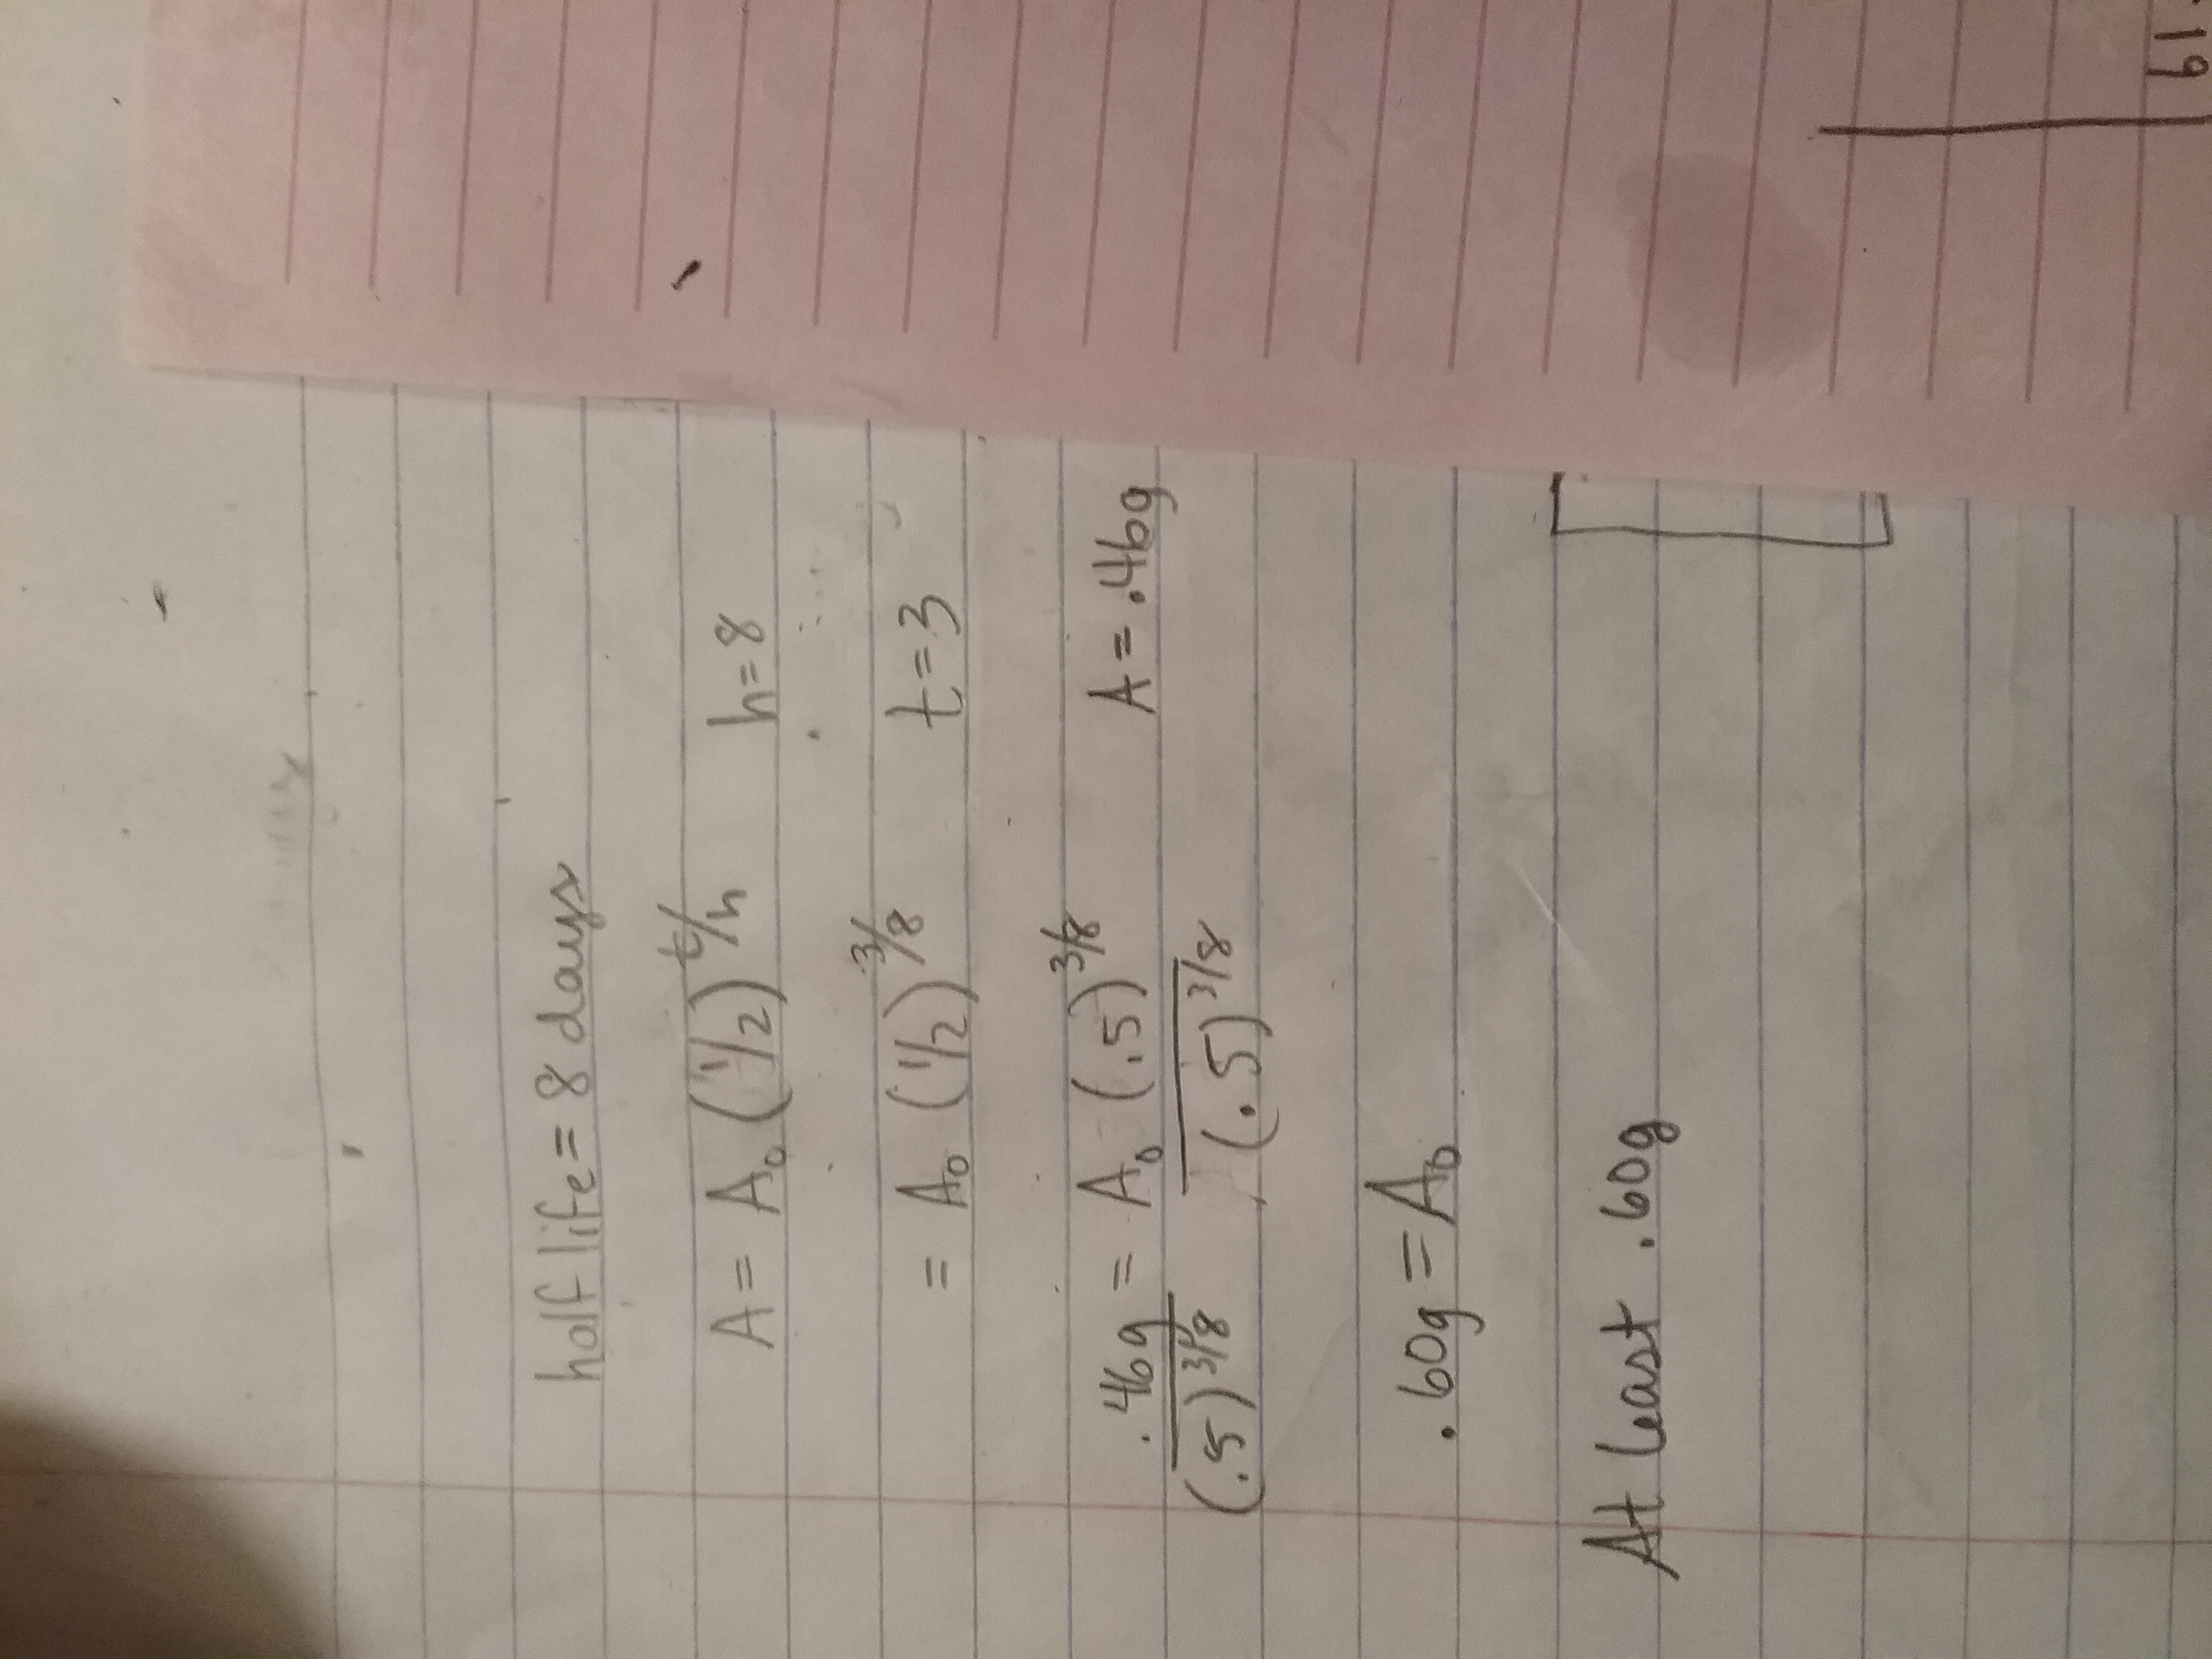 half life = 8 days
A = A₀ (1/2)^t/h h=8
= A₀ (1/2)^3/8 t=3
.46g = A₀ (.5)^3/8 A = .46g
(.5)^3/8 (.5)^3/8
.60g = A₀
At least .60g